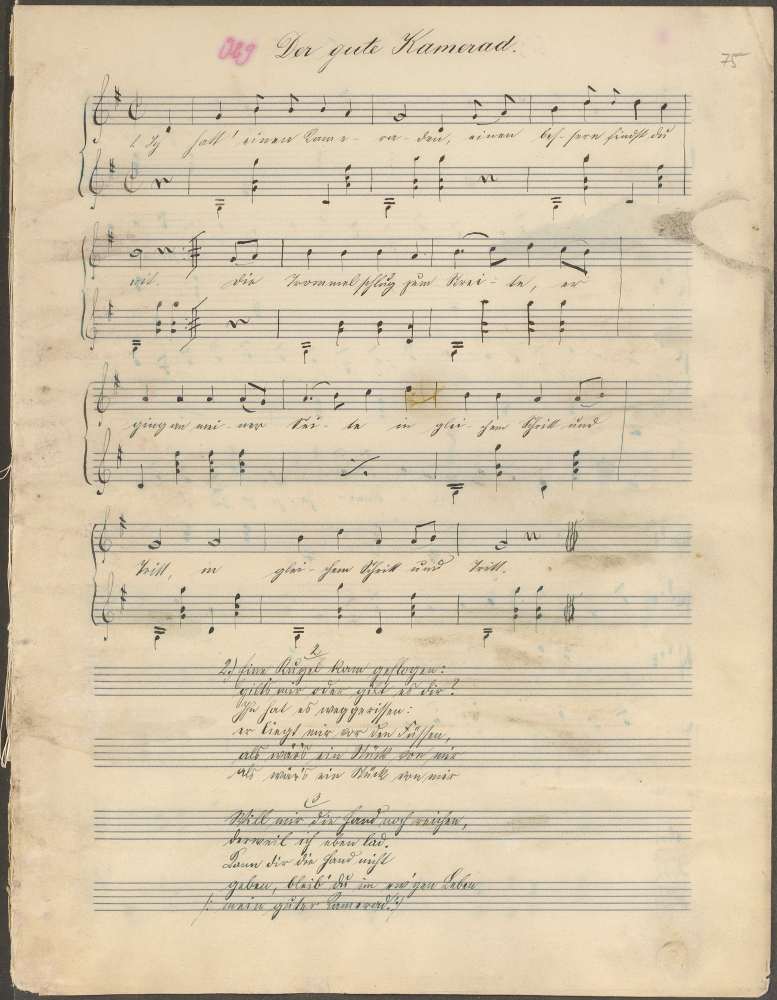 Der gute Kamerad.
75
1. Ich hatt' einen Kame - ra - den, einen bes - sern findst du
nit. Die Trommel schlug zum Strei - te, er
ging an mei - ner Sei - te in glei - chem Schritt und
Tritt, in glei - chem Schritt und Tritt.
2.
2.) Eine Kugel kam geflogen:
gilts mir oder gilt es dir?
Ihn hat es weggerissen:
er liegt mir vor den Füssen,
als wärs ein Stück von mir
als wär's ein Stück von mir
3
Will mir die Hand noch reichen,
derweil ich eben lad.
Kann dir die Hand nicht
geben, bleib' du im ew'gen Leben
/: mein guter Kamerad! :/